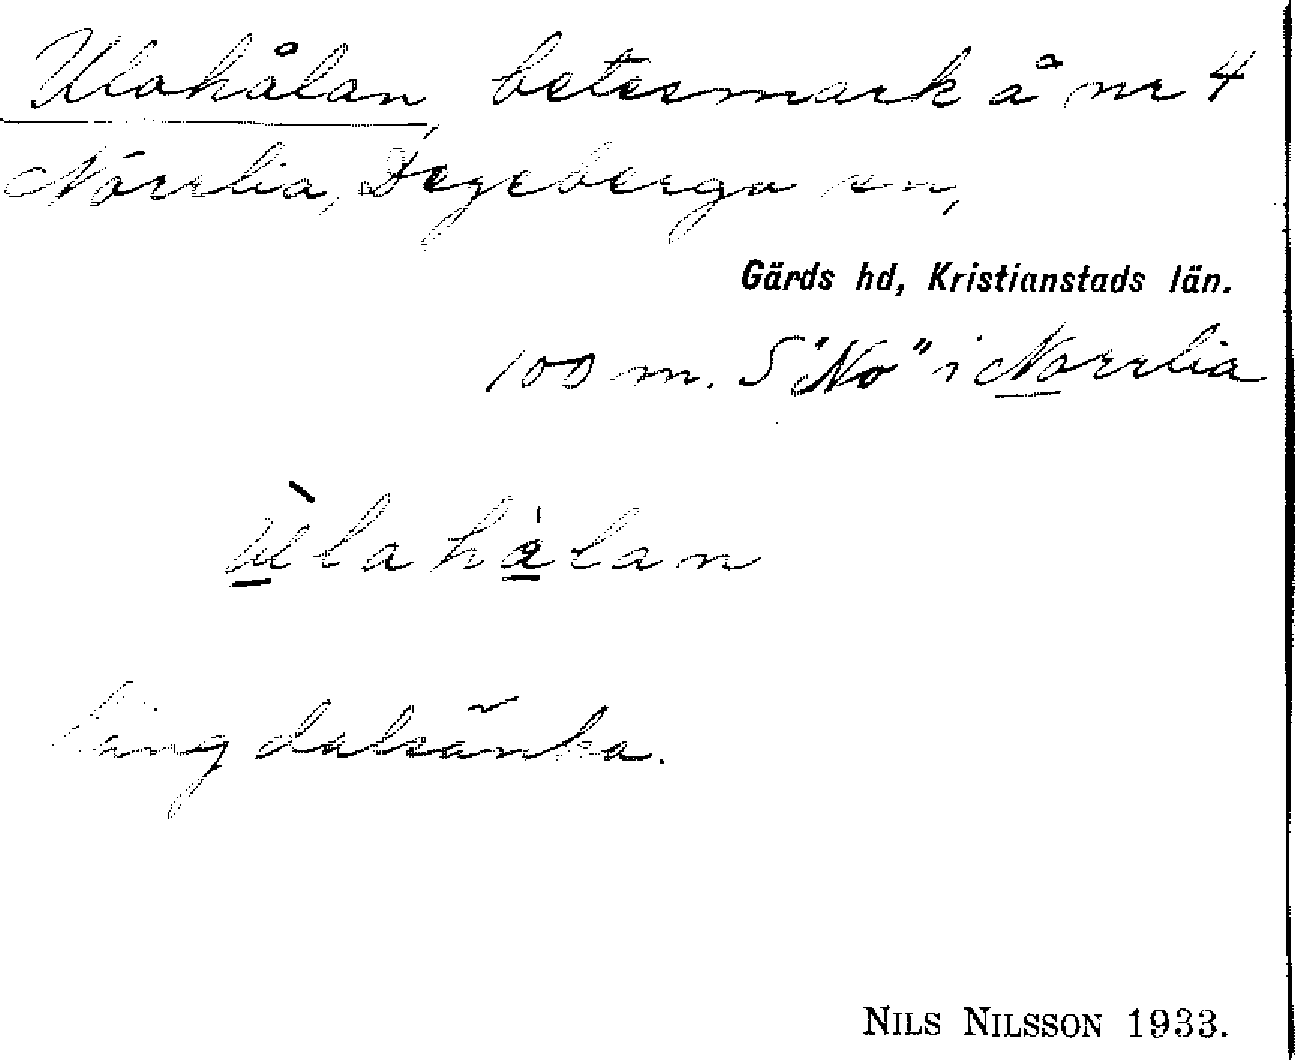 Ulahålan, betesmark å nr 4
Norrlia, Degeberga sn,
Gärds hd, Kristianstads län.
100 m. S "No" i Norrlia
ùlahålan
Lång dalsänka.
NILS NILSSON 1933.